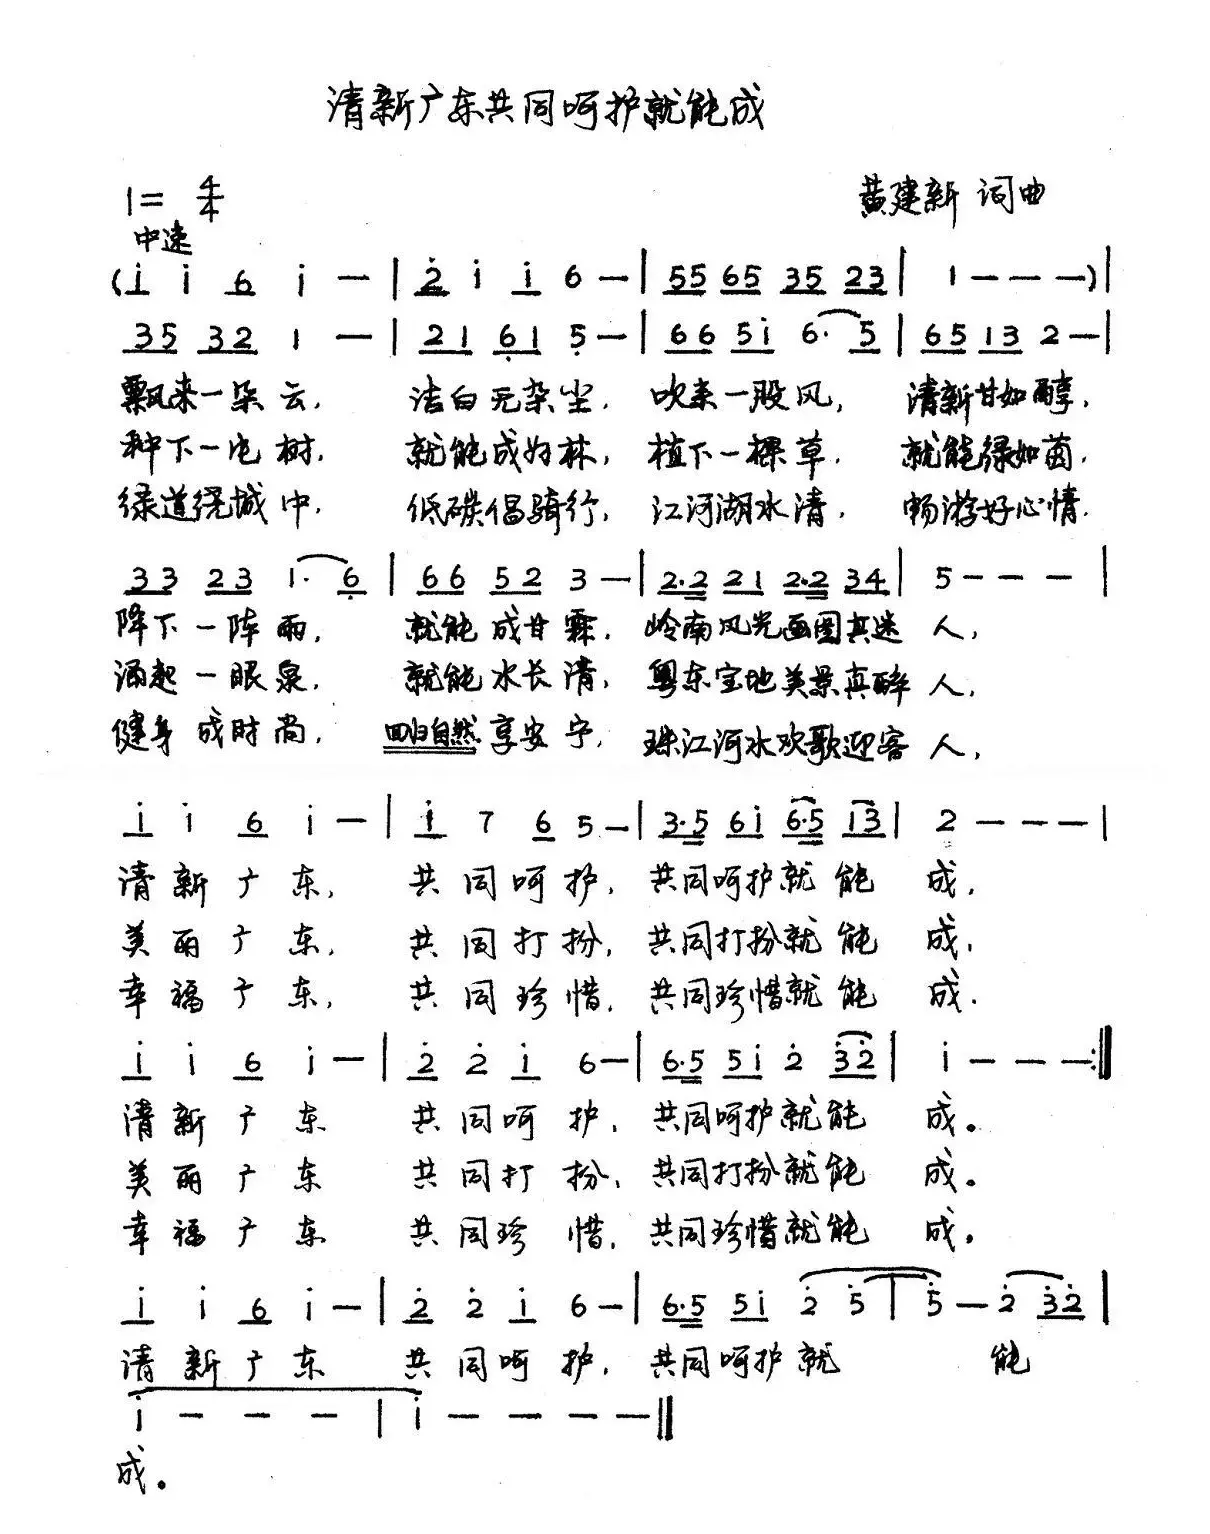 清新广东共同呵护就能成
1= 4/4
黄建新 词曲
中速
(i i 6 i — | 2 i i 6 — | 55 65 35 23 | 1 — — —)|
35 32 1 — | 21 61 5 — | 66 5i 6· 5 | 65 13 2 — |
飘来一朵云, 洁白无杂尘, 吹来一股风, 清新甘如醇,
种下一屯树, 就能成为林, 植下一棵草, 就能绿如茵,
绿道绕城中, 低碳倡骑行, 江河湖水清, 畅游好心情.
33 23 1· 6 | 66 52 3 — | 2·2 21 2·2 34 | 5 — — — |
降下一阵雨, 就能成甘霖, 岭南风光画图真迷人,
涌起一眼泉, 就能水长清, 粤东宝地美景真醉人,
健身成时尚, 回归自然享安宁, 珠江河水欢歌迎客人,
i i 6 i — | i 7 6 5 — | 3·5 6i 6·5 13 | 2 — — — |
清新广东, 共同呵护, 共同呵护就能成,
美丽广东, 共同打扮, 共同打扮就能成,
幸福广东, 共同珍惜, 共同珍惜就能成.
i i 6 i — | 2 2 i 6 — | 6·5 5i 2 32 | i — — — :||
清新广东 共同呵护, 共同呵护就能成。
美丽广东 共同打扮, 共同打扮就能成。
幸福广东 共同珍惜, 共同珍惜就能成。
i i 6 i — | 2 2 i 6 — | 6·5 5i 2 5 | 5 — 2 32 |
清新广东 共同呵护, 共同呵护就能
i — — — | i — — — — ||
成。